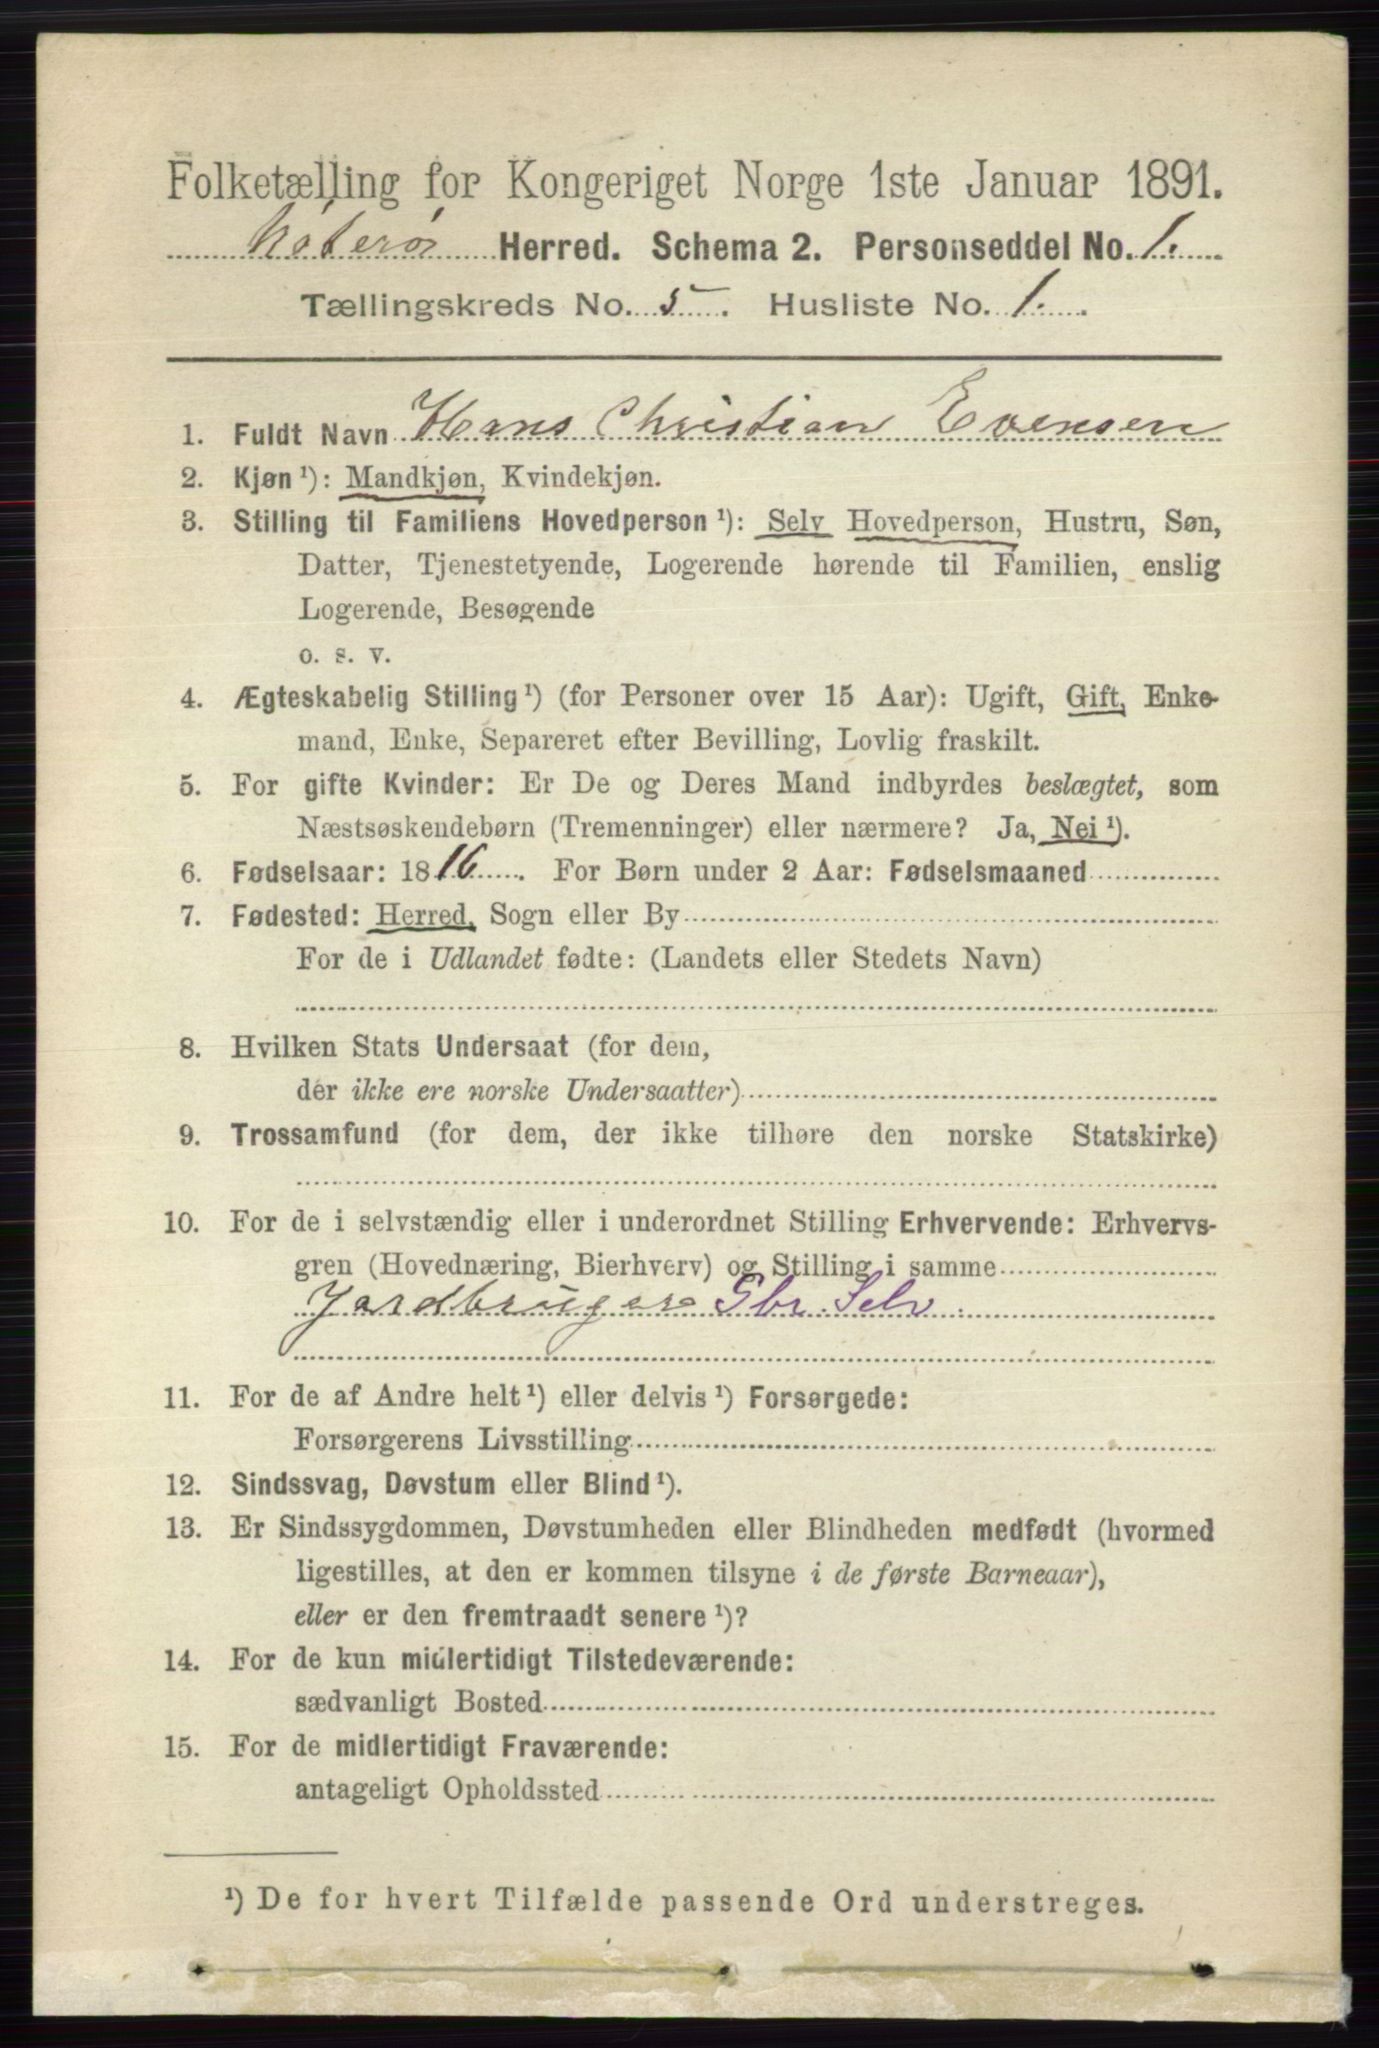 Folketælling for Kongeriget Norge 1ste Januar 1891.
Nøterø Herred. Schema 2. Personseddel No. 1.
Tællingskreds No. 5. Husliste No. 1.
1. Fuldt Navn Hans Christian Evensen
2. Kjøn ¹): Mandkjøn, Kvindekjøn.
3. Stilling til Familiens Hovedperson ¹): Selv Hovedperson, Hustru, Søn,
Datter, Tjenestetyende, Logerende hørende til Familien, enslig
Logerende, Besøgende
o. s. v.
4. Ægteskabelig Stilling ¹) (for Personer over 15 Aar): Ugift, Gift, Enke-
mand, Enke, Separeret efter Bevilling, Lovlig fraskilt.
5. For gifte Kvinder: Er De og Deres Mand indbyrdes beslægtet, som
Næstsøskendebørn (Tremenninger) eller nærmere? Ja, Nei ¹).
6. Fødselsaar: 1816. For Børn under 2 Aar: Fødselsmaaned
7. Fødested: Herred, Sogn eller By
For de i Udlandet fødte: (Landets eller Stedets Navn)
8. Hvilken Stats Undersaat (for dem,
der ikke ere norske Undersaatter)
9. Trossamfund (for dem, der ikke tilhøre den norske Statskirke)
10. For de i selvstændig eller i underordnet Stilling Erhvervende: Erhvervs-
gren (Hovednæring, Bierhverv) og Stilling i samme
Jordbruger Gbr. Selv.
11. For de af Andre helt ¹) eller delvis ¹) Forsørgede:
Forsørgerens Livsstilling
12. Sindssvag, Døvstum eller Blind ¹).
13. Er Sindssygdommen, Døvstumheden eller Blindheden medfødt (hvormed
ligestilles, at den er kommen tilsyne i de første Barneaar),
eller er den fremtraadt senere ¹)?
14. For de kun midlertidigt Tilstedeværende:
sædvanligt Bosted
15. For de midlertidigt Fraværende:
antageligt Opholdssted
¹) De for hvert Tilfælde passende Ord understreges.